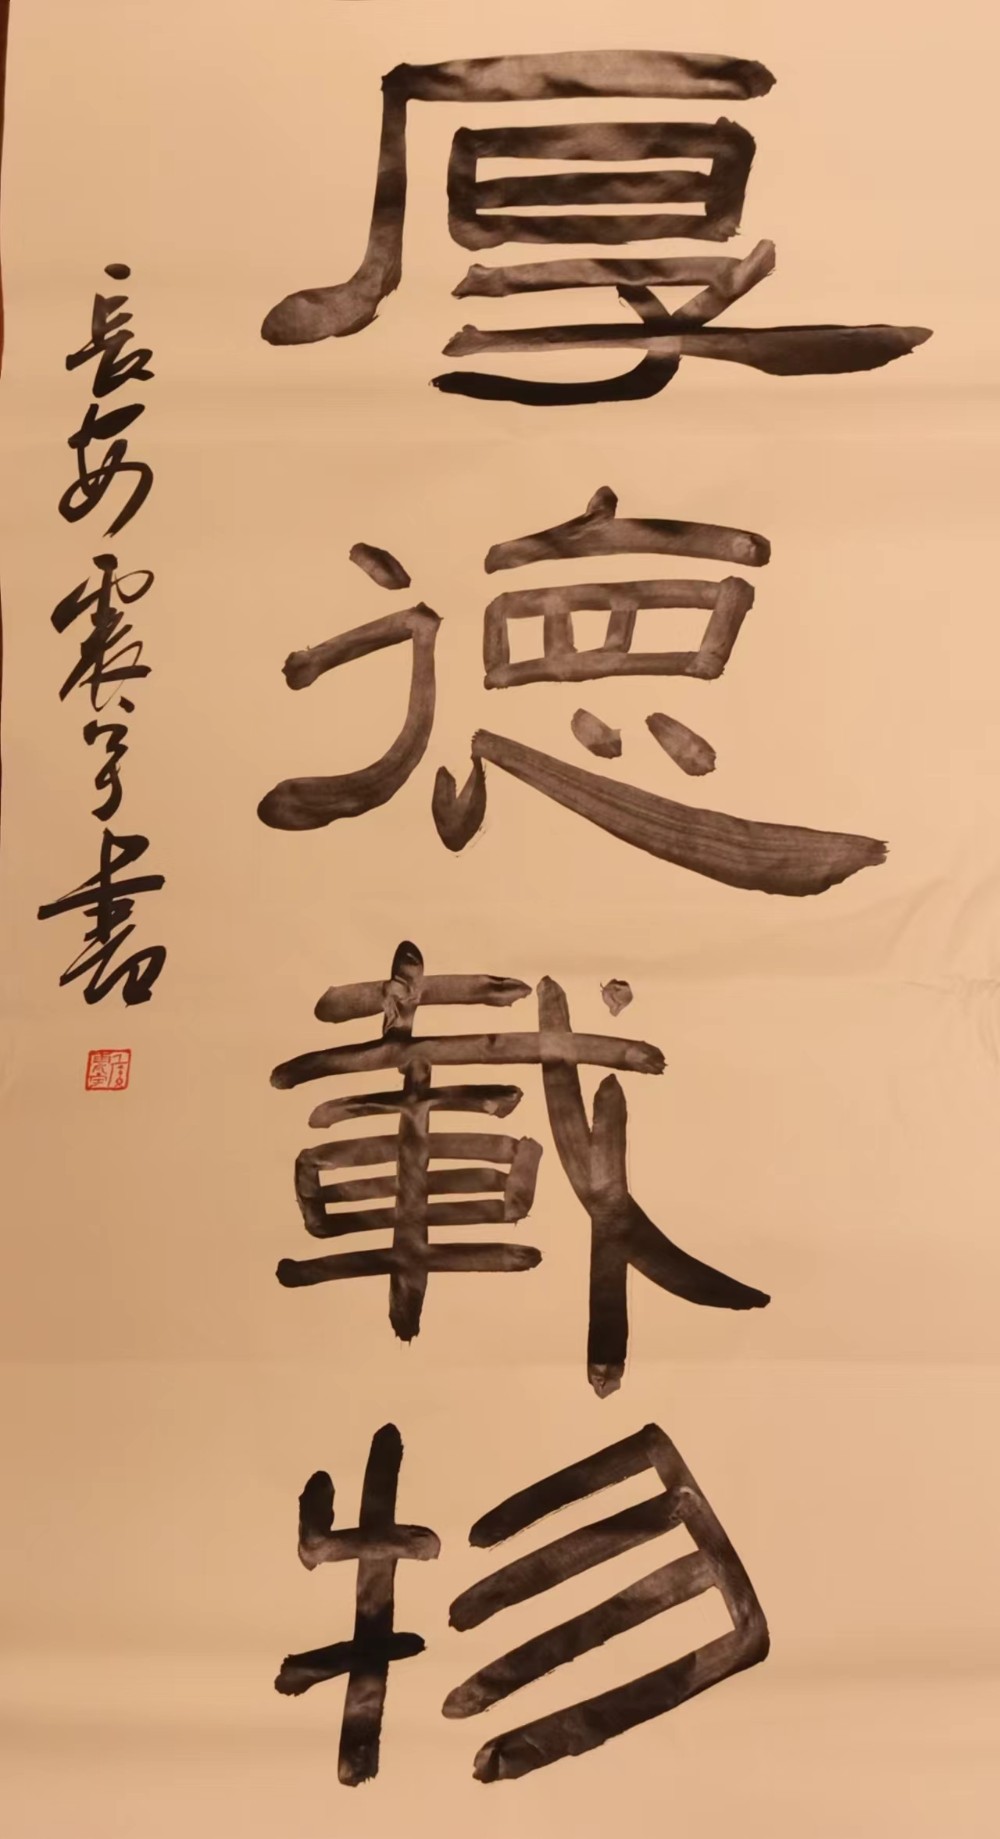 厚德載物
長安震宇書